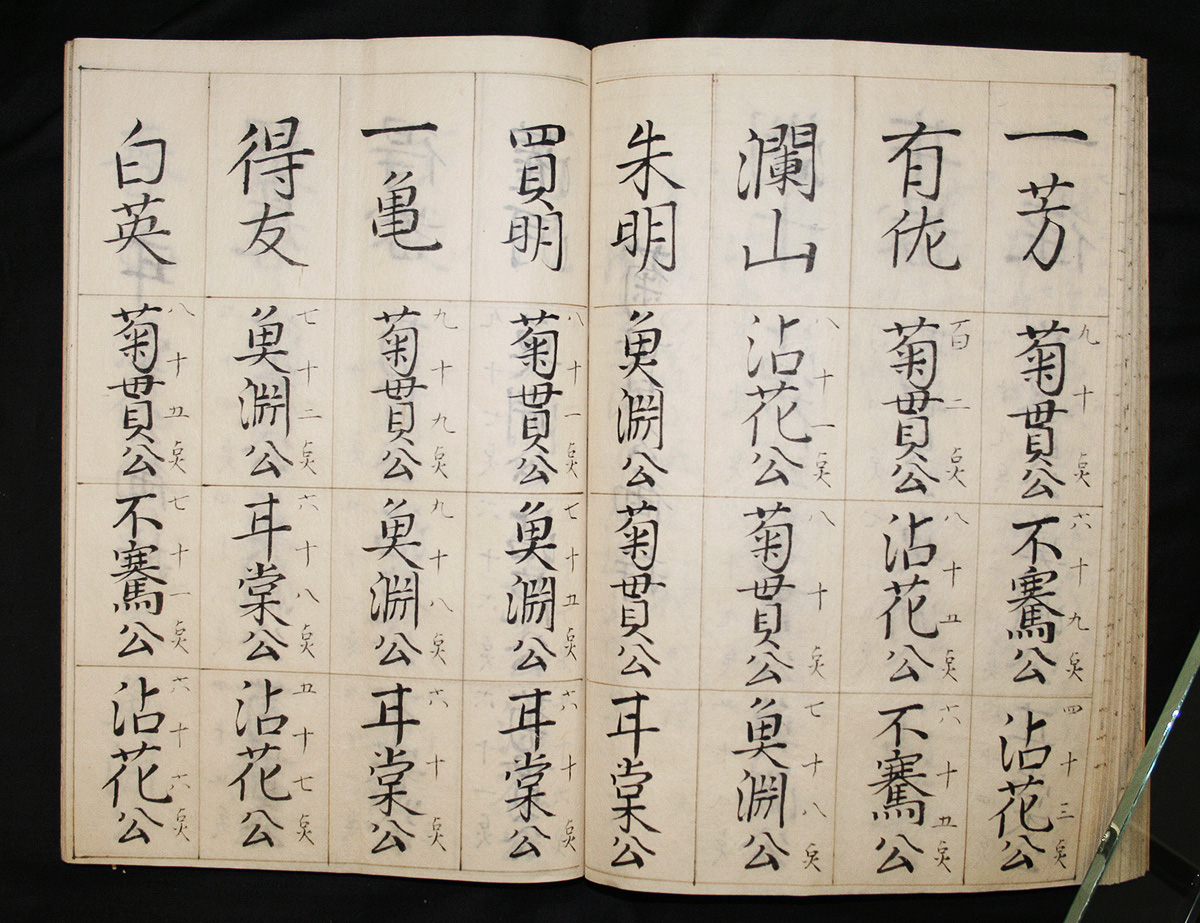 一芳
九十奌
菊貫公
六十九奌
不騫公
四十三奌
沾花公
有
百二奌
菊貫公
八十五奌
沾花公
六十五奌
不騫公
瀾山
八十一奌
沾花公
八十奌
菊貫公
七十八奌
魚淵公
朱明
魚淵公
菊貫公
甘棠公
買明
八十一奌
菊貫公
七十五奌
魚淵公
六十奌
甘棠公
一亀
九十九奌
菊貫公
九十八奌
魚淵公
六十奌
甘棠公
得友
七十二奌
魚淵公
六十八奌
甘棠公
五十七奌
沾花公
白英
八十五奌
菊貫公
七十一奌
不騫公
六十六奌
沾花公